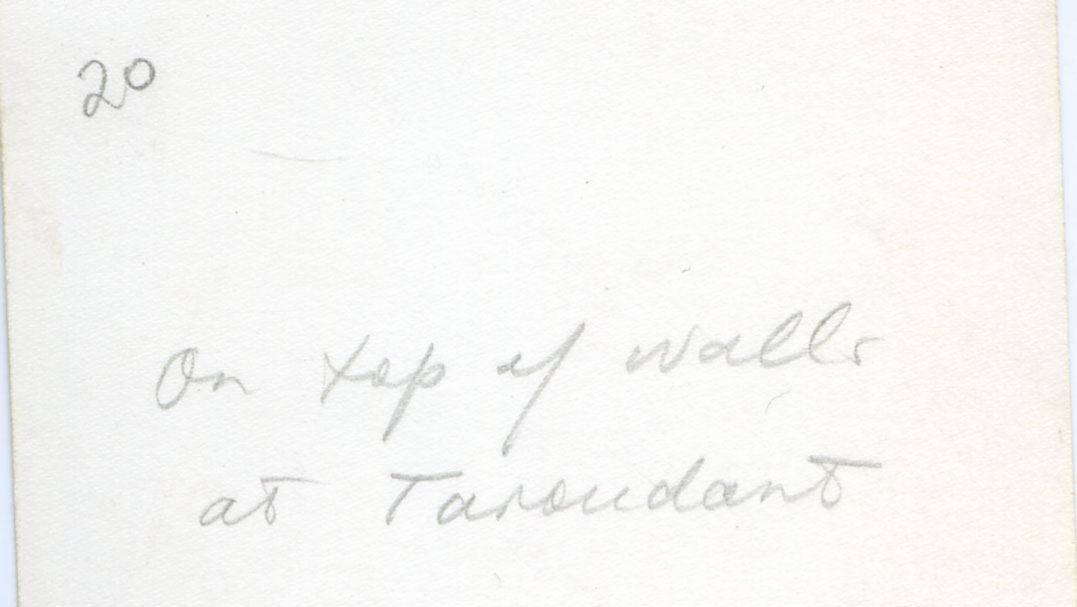 20
On top of walls
at Taroudant